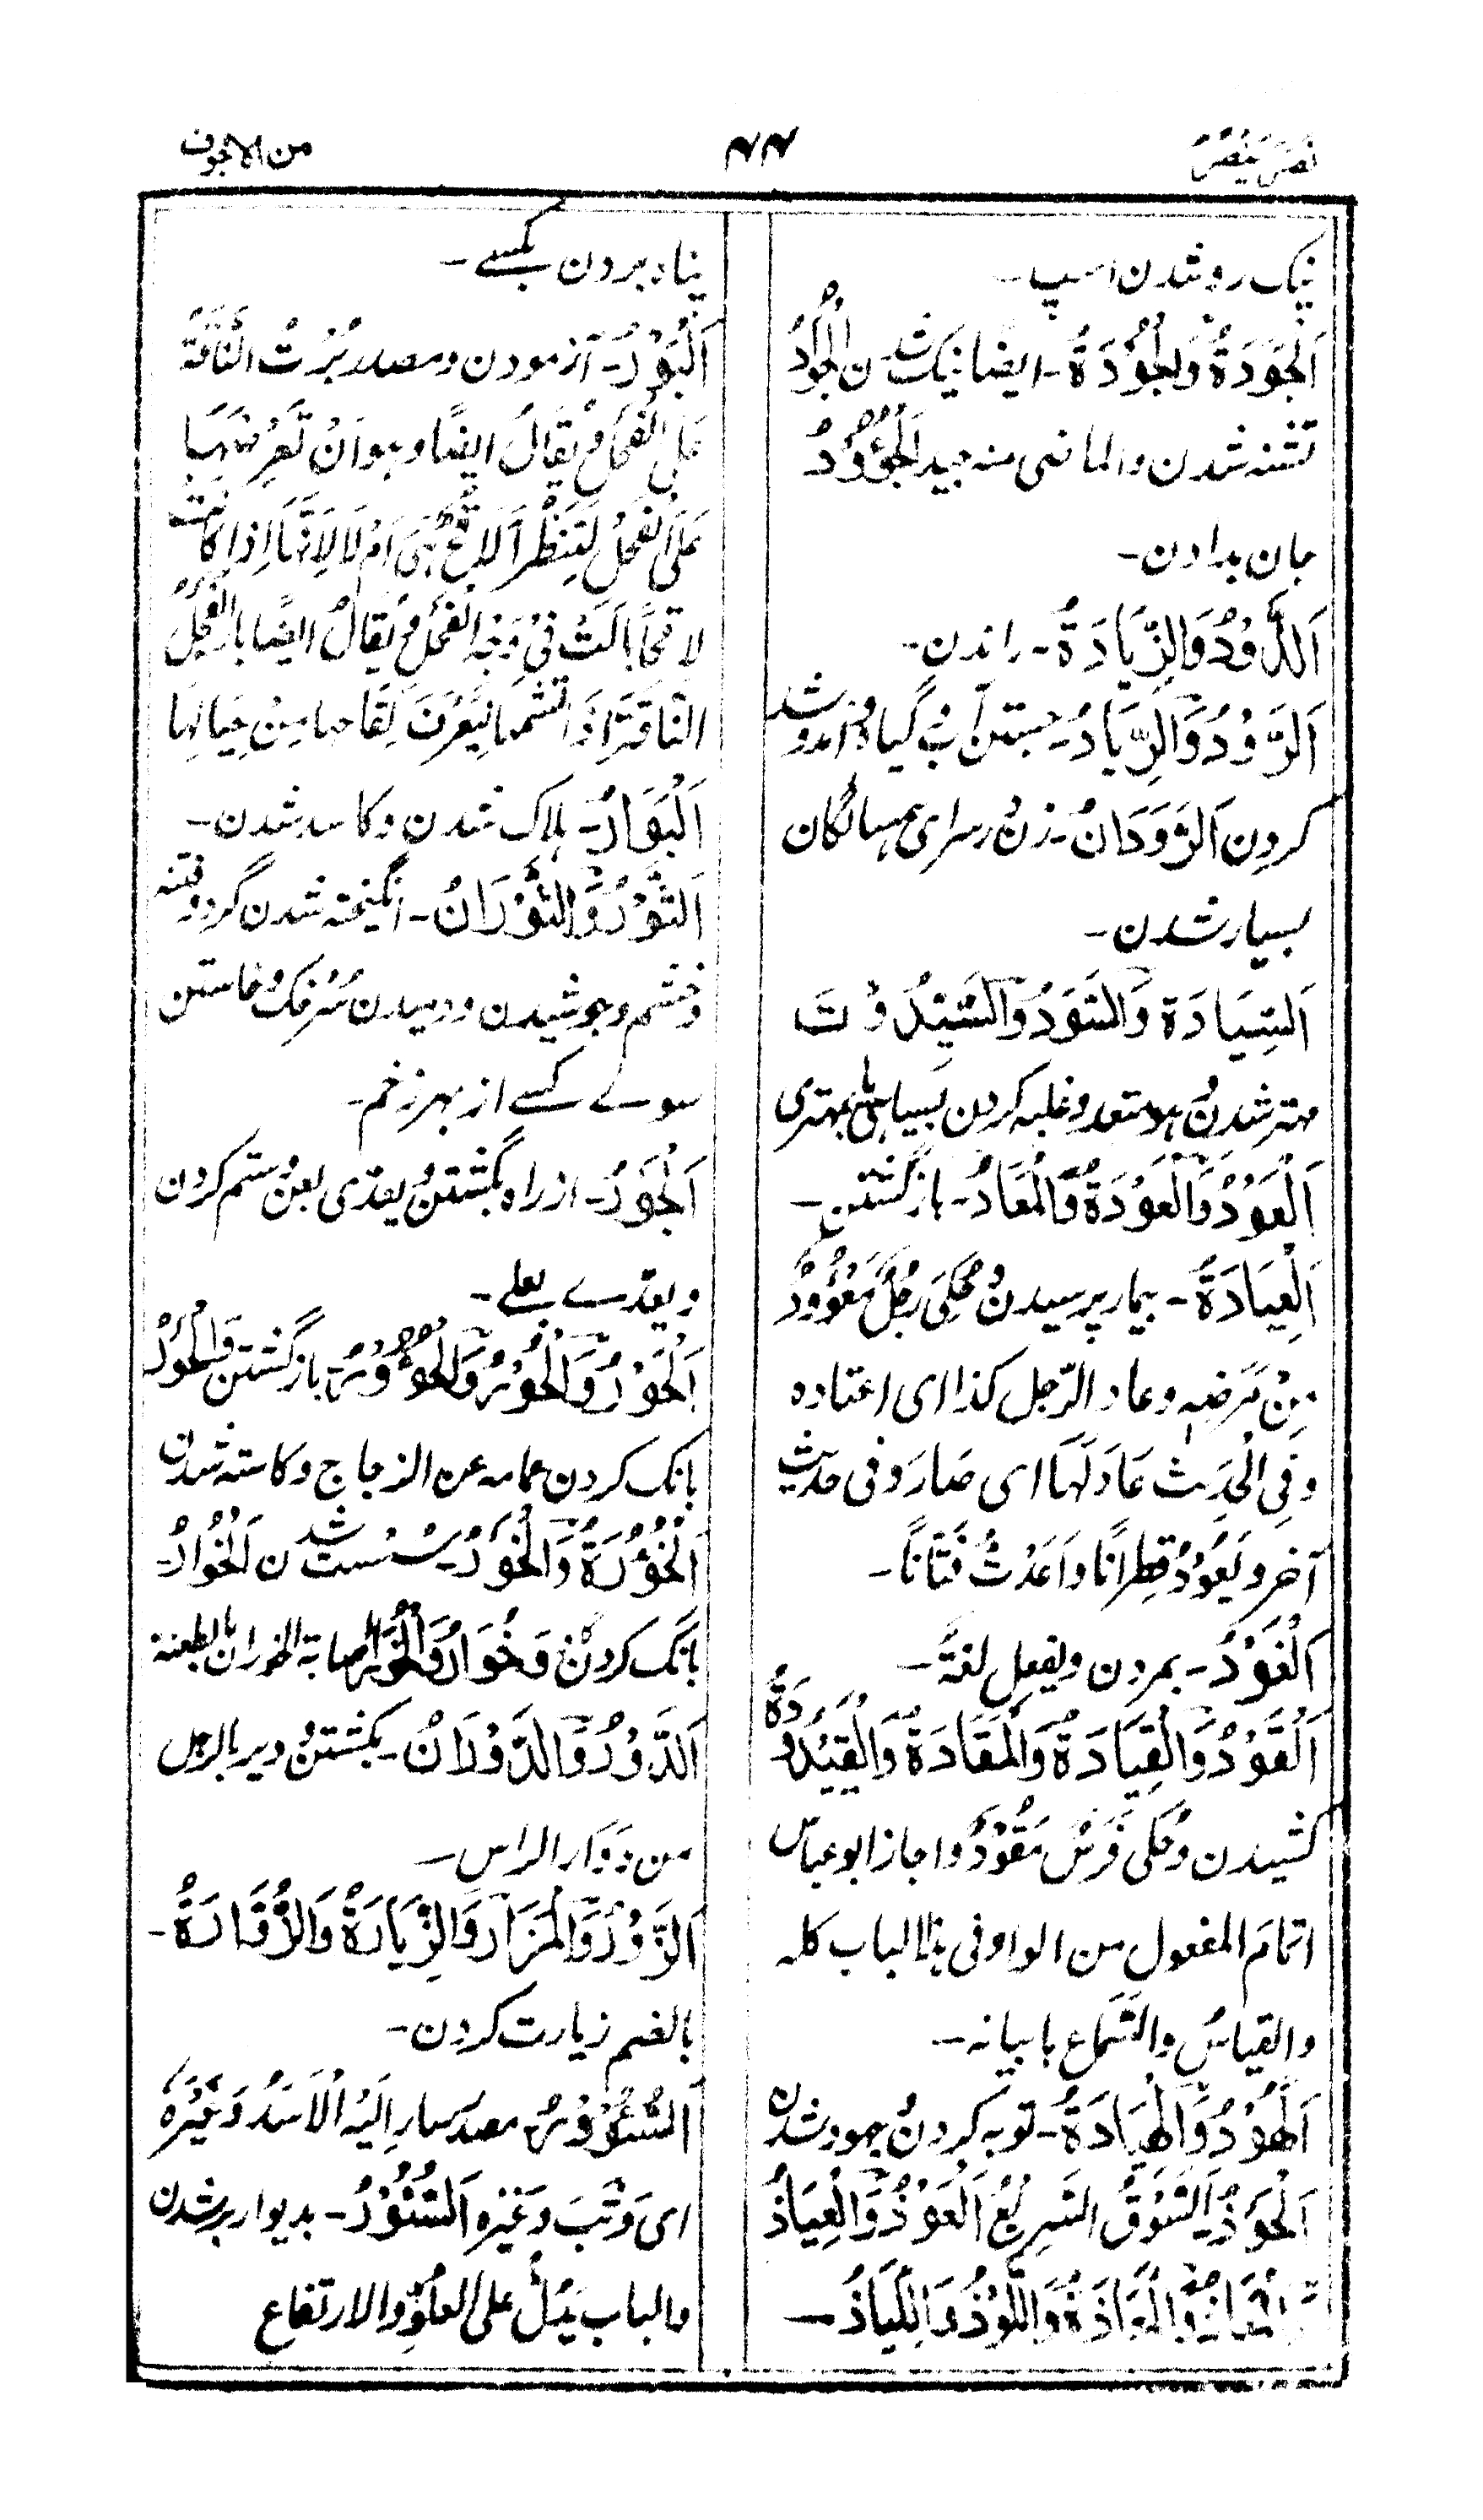 نَصَرَ يَنْصُرُ
۴۴
من الاجوف
نیک رو شدن اسپ۔
اَلْجَوْدَةُ وَالْجُوْدَةُ۔ ایضا نیک شدن اَلْجُوَادُ
تشنه شدن والماضی منه جید اَلْجُؤُوْدُ
جان بدادن۔
اَلذَّوْدُ وَالذِّيَادَةُ۔ راندن۔
اَلرَّوْدُ وَالرِّيَادُ۔ جستن آب و گیاه و آمد و شد
کردن اَلرَّوَدَانُ۔ زن در سرای همسایگان
بسیار شدن۔
اَلسِّيَادَةُ وَالسَّوَدُ وَالسَّيْدُوْدَةُ
مهتر شدن والا متعد و غلبه کردن بسیاهی یا بمهتری
اَلْعَوْدُ وَالْعَوْدَةُ وَالْمَعَادُ۔ بازگشتن۔
اَلْعِيَادَةُ۔ بیمار پرسیدن وحُکِیَ رَجُلٌ مَعْوُوْدٌ
مِنْ مَرَضِهٖ وعاد الرّجل کذا ای اعتاده
وَفِي الْحَدِيْث عَادَ لَهَا ای صَارَ وفی حدیث
آخر وَيَعُوْدُ قِطْرَانًا وَاَعَدْتُ فَتَّانًا۔
اَلْفَوْدُ۔ بمردن ویفعل لغةً۔
اَلْقَوْدُ وَالْقِيَادَةُ وَالْمَقَادَةُ وَالْقَيْدُوْدَةُ
کشیدن وحُکی فَرَسٌ مَقْوُوْدٌ واجاز ابو عباس
اتمامَ المفعول من الواو فی هذا الباب کله
والقیاسُ والسَّماع یابیانه۔
اَلْهَوْدُ وَالْهِيَادَةُ۔ توبه کردن و یهود شدن
اَلْحَوْذُ السَّوْقُ السَّرِيْعُ اَلْعَوْذُ وَالْعِيَاذُ
وَالْمَعَاذُ وَالْمَعَاذَةُ وَاللَّوْذُ وَاللِّيَاذُ۔
پناه بردن بکسے۔
اَلْبَوْرُ۔ آزمودن ومصدر بُرْتُ النَّاقَةَ
عَلَى الْفَحْلِ يُقَالُ ایضًا وهو اَنْ تَعْرِضَهَا
عَلَى الْفَحْلِ لِتَنْظُرَ اَلَاقِحٌ هِيَ اَمْ لَا لِاَنَّهَا اِذَا كَانَتْ
لاقحًا بَالَتْ فِيْ وَجْهِ الْفَحْلِ وَيُقَالُ ایضًا بَارَ الْفَحْلُ
النَّاقَةَ اِذَا تشمّها لِيَعْرِفَ لِقَاحها مِنْ حِيَالِهَا
اَلْبَوَارُ۔ هلاک شدن وکاسد شدن۔
اَلثَّوْرُ وَالثَّوَرَانُ۔ انگیخته شدن گرد و فتنه
و خشم وجوشیدن ودمیدن سُرخک وخاستن
سوئے کسے از بهر زخم۔
اَلْجَوْرُ۔ از راه بگشتن یعدی بعن ستم کردن
ویعدے بعلے۔
اَلْحَوْرُ وَالْحُوْرُ وَالْحُؤُوْرُ بازگشتن وَالْحَوْرُ
بانگ کردن عامه عن الزجاج وکاسته شدن
اَلْخُؤُرَةُ وَالْخَوَرُ۔ سُست شدن اَلْخُوَارُ۔
بانگ کردن وَخُوَارُ وَالْخَوْرُ اصابة الخوران بالطعنة
اَلدَّوْرُ وَالدَّوَرَانُ۔ بگشتن ودیر بالرجل
من دُوَار الراس۔
اَلزَّوْرُ وَالْمَزَارُ وَالزِّيَارَةُ وَالزُّوَارَةُ۔
بالضم زیارت کردن۔
اَلسُّؤُوْرُ مصدر سار اِلَيْهِ الْاَسَدُ وَغَيْرُهُ
ای وَثَبَ وَغَيْرِه اَلسُّئُوْرُ۔ بدیوار برشدن
والباب یَدُلُّ علی العلوِّ والارتفاع